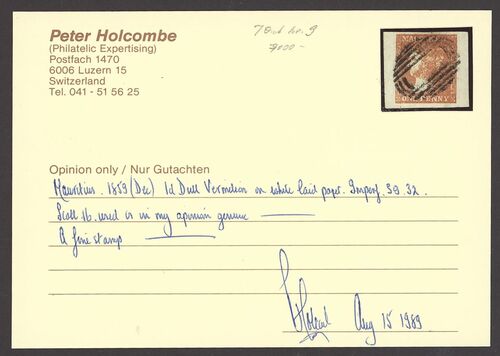 Peter Holcombe
(Philatelic Expertising)
Postfach 1470
6006 Luzern 15
Switzerland
Tel. 041 - 51 56 25
9000 -
MAU
ONE PENNY
Opinion only / Nur Gutachten
Mauritius. 1859 (Dec) 1d Dull Vermilion on white laid paper. Imperf. SG. 32.
Scott 16. used is in my opinion genuine
A fine stamp
Aug 15 1989